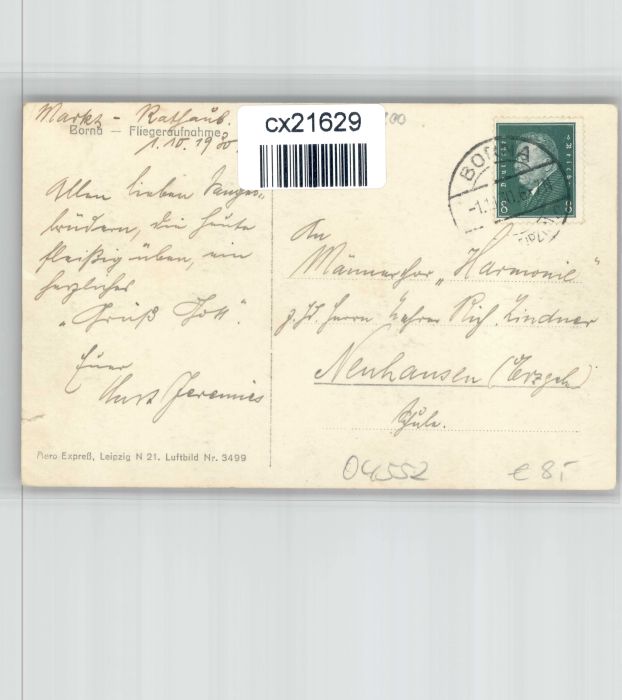 Markt - Rathaus.
Borna — Fliegeraufnahme
1.10.1930
cx21629
Allen lieben Sanges-
brüdern, die heute
fleißig üben, ein
herzliches
„Grüß Gott".
Euer
Kurt Jeremies
Aero Expreß, Leipzig N 21. Luftbild Nr. 3499
BORNA
Deutsches Reich
8 8
An
Männerchor „Harmonie"
z. Hd. Herrn Lehrer Rich. Lindner
Neuhausen (Erzgeb.)
Schule.
04552
€ 8,-